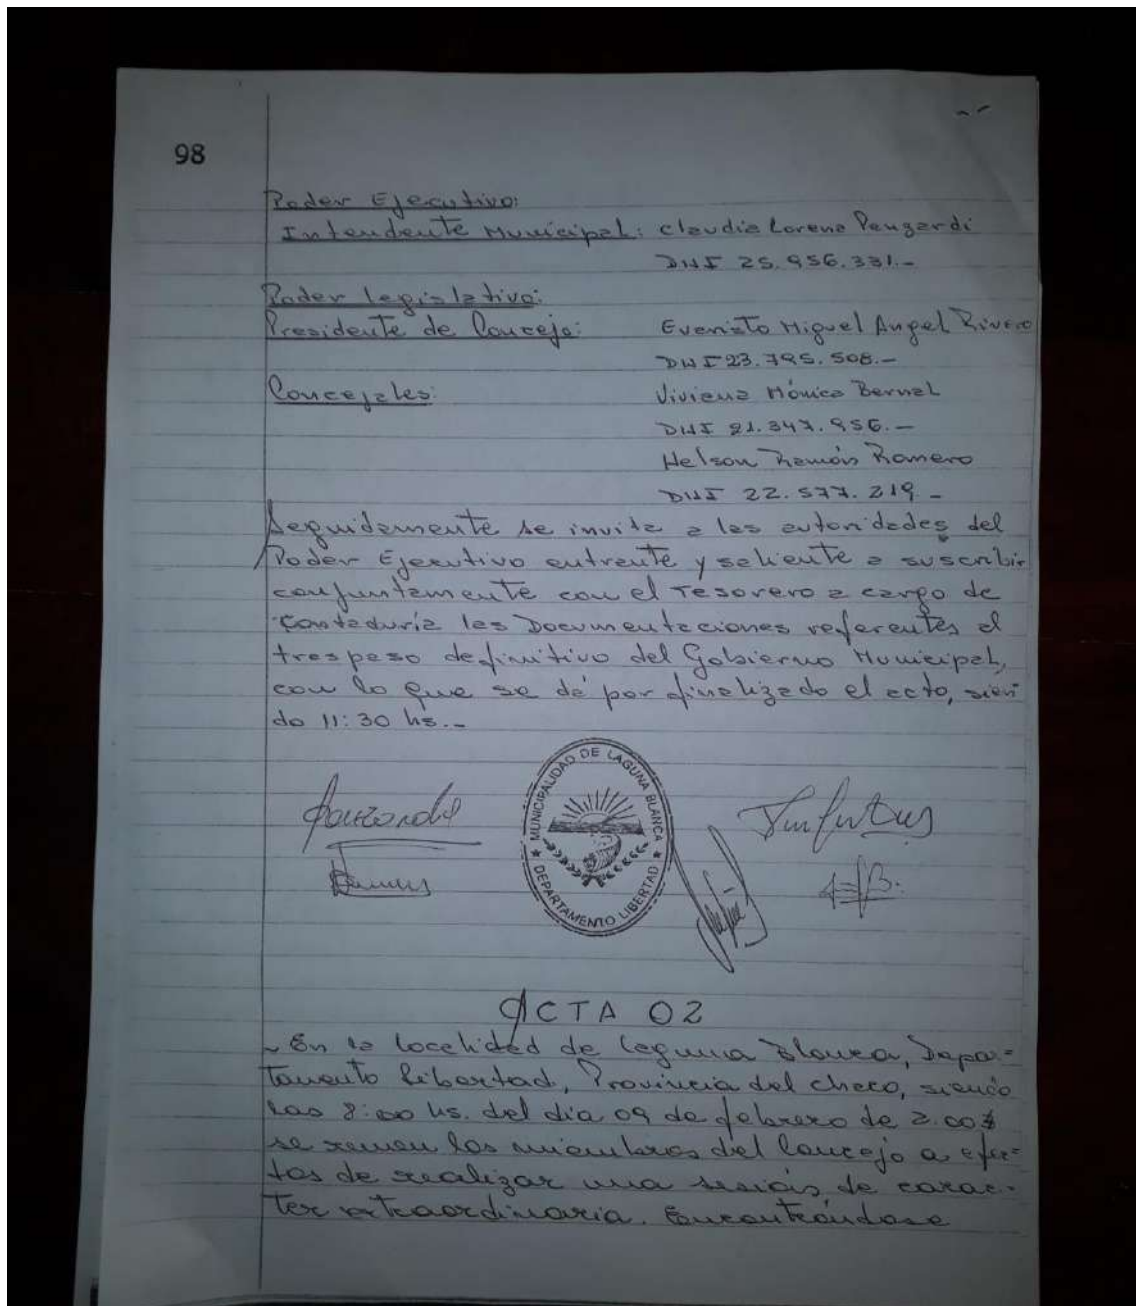 98
Poder Ejecutivo:
Intendente Municipal: Claudia Lorena Panzardi
DNI 25.956.331.-
Poder Legislativo:
Presidente de Concejo: Evaristo Miguel Angel Rivero
DNI 23.795.508.-
Concejales: Viviana Mónica Bernal
DNI 21.347.956.-
Nelson Ramón Romero
DNI 22.577.219-
Seguidamente se invita a las autoridades del
Poder Ejecutivo entrante y saliente a suscribir
conjuntamente con el Tesorero a cargo de
Contaduría las Documentaciones referentes al
traspaso definitivo del Gobierno Municipal,
con lo que se dá por finalizado el acto, sien
do 11:30 hs.-
MUNICIPALIDAD DE LAGUNA BLANCA
DEPARTAMENTO LIBERTAD
ACTA 02
- En la localidad de Laguna Blanca, Depar=
tamento Libertad, Provincia del Chaco, siendo
las 8:00 hs. del día 09 de febrero de
se reunen los miembros del Concejo a efec=
tos de realizar una sesión de carac-
ter extraordinaria. Encontrándose